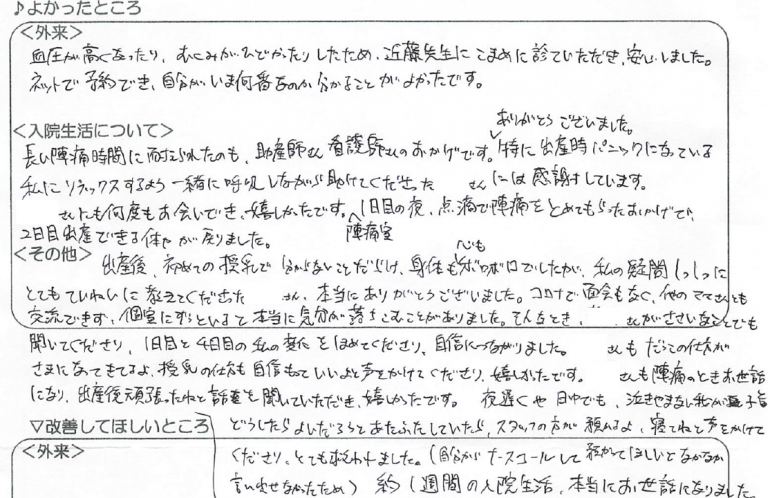 ♪よかったところ
<外来>
血圧が高くなったり、むくみがひどかったりしたため、近藤先生にこまめに診ていただき、安心しました。
ネットで予約でき、自分がいま何番なのか分かることがよかったです。
<入院生活について>
ありがとうございました。
長い陣痛時間に耐えられたのも、助産師さん看護師さんのおかげです。特に出産時パニックになっている
私にリラックスするよう一緒に呼吸しながら助けてくださった さんには感謝しています。
さんにも何度もお会いでき、嬉しかったです。1日目の夜、点滴で陣痛をとめてもらったおかげで、
陣痛室
2日目出産できる体力が戻りました。
<その他>
心も
出産後、初めての授乳で分からないことだらけ、身体もボロボロでしたが、私の疑問1つ1つに
とてもていねいに教えてくださった さん、本当にありがとうございました。コロナで面会もなく、他のママさんとも
交流できず、個室にずっといると本当に気分が落ちこむことがありました。そんなとき、 さんがささいなことでも
聞いてくださり、1日目と4日目の私の変化をほめてくださり、自信につながりました。 さんもだっこの仕方が
さまになってきてるよ、授乳の仕方も自信もっていいよと声をかけてくださり、嬉しかったです。 さんも陣痛のときお世話
になり、出産後頑張ったねと話を聞いていただき、嬉しかったです。夜遅くや日中でも、泣きやまない我が子を
▽改善してほしいところ
どうしたらよいだろうとあたふたしていたら、スタッフの方が頼れるよ、寝てねと声をかけて
<外来>
くださり、とても救われました。(自分がナースコールして預かってほしいとなかなか
言い出せなかったため) 約1週間の入院生活、本当にお世話になりました。